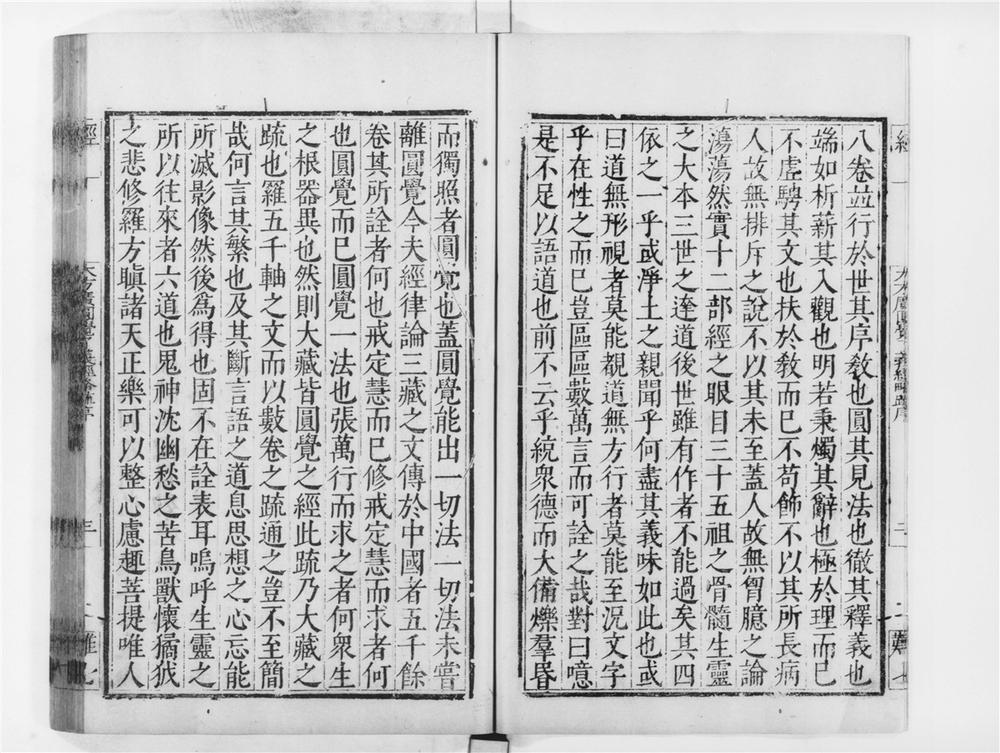 八卷並行於世其序教也圓其見法也徹其釋義也
端如析薪其入觀也明若秉燭其辭也極於理而已
不虛騁其文也扶於教而已不苟飾不以其所長病
人故無排斥之說不以其未至蓋人故無胷臆之論
蕩蕩然實十二部經之眼目三十五祖之骨髓生靈
之大本三世之達道後世雖有作者不能過矣其四
依之一乎或淨土之親聞乎何盡其義味如此也或
曰道無形視者莫能覩道無方行者莫能至況文字
乎在性之而已豈區區數萬言而可詮之哉對曰噫
是不足以語道也前不云乎統衆德而大備爍羣昏
而獨照者圓覺也蓋圓覺能出一切法一切法未嘗
離圓覺今夫經律論三藏之文傳於中國者五千餘
卷其所詮者何也戒定慧而已修戒定慧而求者何
也圓覺而已圓覺一法也張萬行而求之者何衆生
之根器異也然則大藏皆圓覺之經此疏乃大藏之
疏也羅五千軸之文而以數卷之疏通之豈不至簡
哉何言其繁也及其斷言語之道息思想之心忘能
所滅影像然後爲得也固不在詮表耳嗚呼生靈之
所以往來者六道也鬼神沈幽愁之苦鳥獸懷獝狘
之悲修羅方瞋諸天正樂可以整心慮趣菩提唯人
經
三